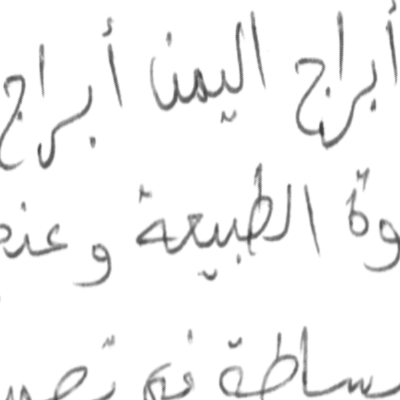 أبراج اليمن أبراج
وة الطبيعة وعنـ
ـساطة في تصميـ